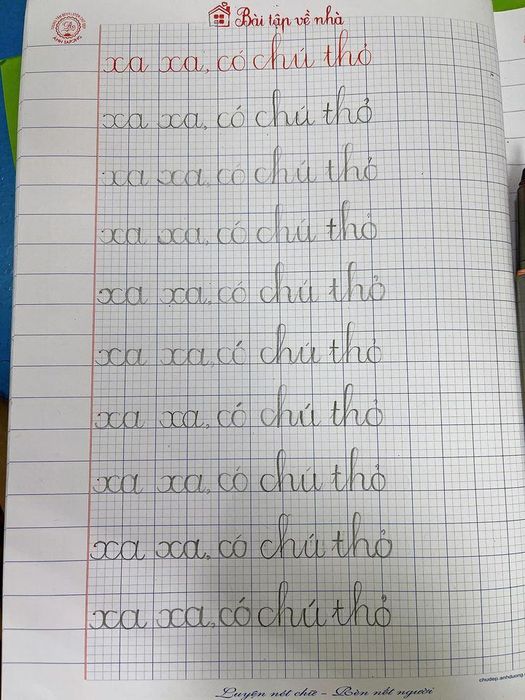 Bài tập về nhà
xa xa, có chú thỏ
xa xa, có chú thỏ
xa xa, có chú thỏ
xa xa, có chú thỏ
xa xa, có chú thỏ
xa xa, có chú thỏ
xa xa, có chú thỏ
xa xa, có chú thỏ
xa xa, có chú thỏ
xa xa, có chú thỏ
chudep.anhduong.
Luyện nét chữ - Rèn nết người